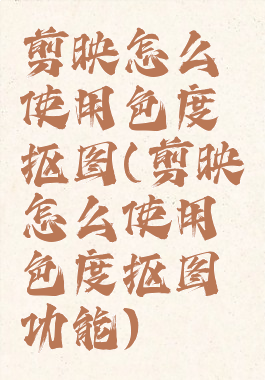 剪映怎么
使用色度
抠图(剪映
怎么使用
色度抠图
功能)